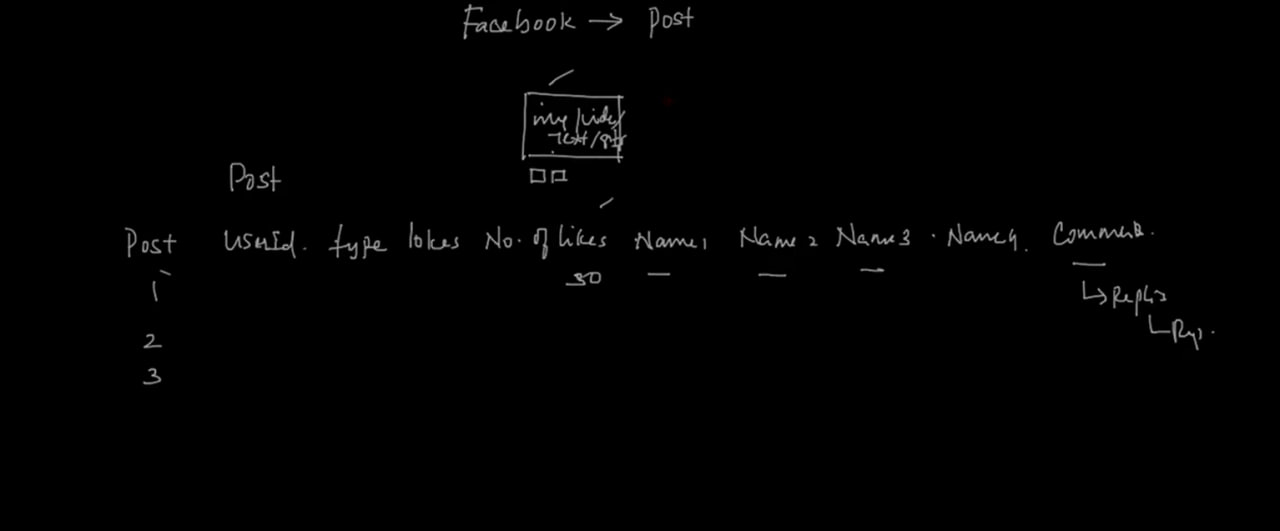 Facebook → Post
img/video/
Text/gif
Post
Post UserId. type lokes No. of likes Name1 Name2 Name3 . Name4. Comments.
1 50 ↳ Replies
↳ Rep.
2
3